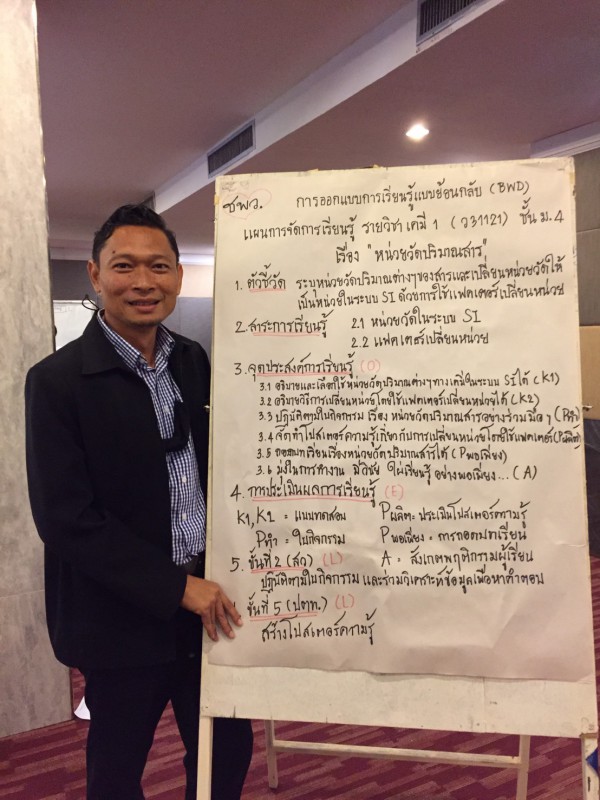 ชพว. การออกแบบการเรียนรู้แบบย้อนกลับ (BWD)
แผนการจัดการเรียนรู้ รายวิชา เคมี 1 (ว31121) ชั้น ม.4
เรื่อง "หน่วยวัดปริมาณสาร"
1. ตัวชี้วัด ระบุหน่วยวัดปริมาณต่างๆของสารและเปลี่ยนหน่วยวัดให้
เป็นหน่วยในระบบ SI ด้วยการใช้แฟคเตอร์เปลี่ยนหน่วย
2. สาระการเรียนรู้ 2.1 หน่วยวัดในระบบ SI
2.2 แฟคเตอร์เปลี่ยนหน่วย
3. จุดประสงค์การเรียนรู้ (O)
3.1 อธิบายและเลือกใช้หน่วยวัดปริมาณต่างๆทางเคมีในระบบ SI ได้ (K1)
3.2 อธิบายวิธีการเปลี่ยนหน่วยโดยใช้แฟคเตอร์เปลี่ยนหน่วยได้ (K2)
3.3 ปฏิบัติตามใบกิจกรรม เรื่อง หน่วยวัดปริมาณสารอย่างร่วมมือๆ (Pทำ)
3.4 จัดทำโปสเตอร์ความรู้เกี่ยวกับการเปลี่ยนหน่วยโดยใช้แฟคเตอร์ (Pผลิต)
3.5 ถอดบทเรียนเรื่องหน่วยวัดปริมาณสารได้ (Pพอเพียง)
3.6 มุ่งในการทำงาน มีวินัย ใฝ่เรียนรู้ อย่างพอเพียง... (A)
4. การประเมินผลการเรียนรู้ (E)
K1, K2 = แบบทดสอบ Pผลิต = ประเมินโปสเตอร์ความรู้
Pทำ = ใบกิจกรรม Pพอเพียง = การถอดบทเรียน
5. ขั้นที่ 2 (สว) (L) A = สังเกตพฤติกรรมผู้เรียน
ปฏิบัติตามใบกิจกรรม และร่วมวิเคราะห์ข้อมูลเพื่อหาคำตอบ
ขั้นที่ 5 (ปตท.) (L)
สร้างโปสเตอร์ความรู้